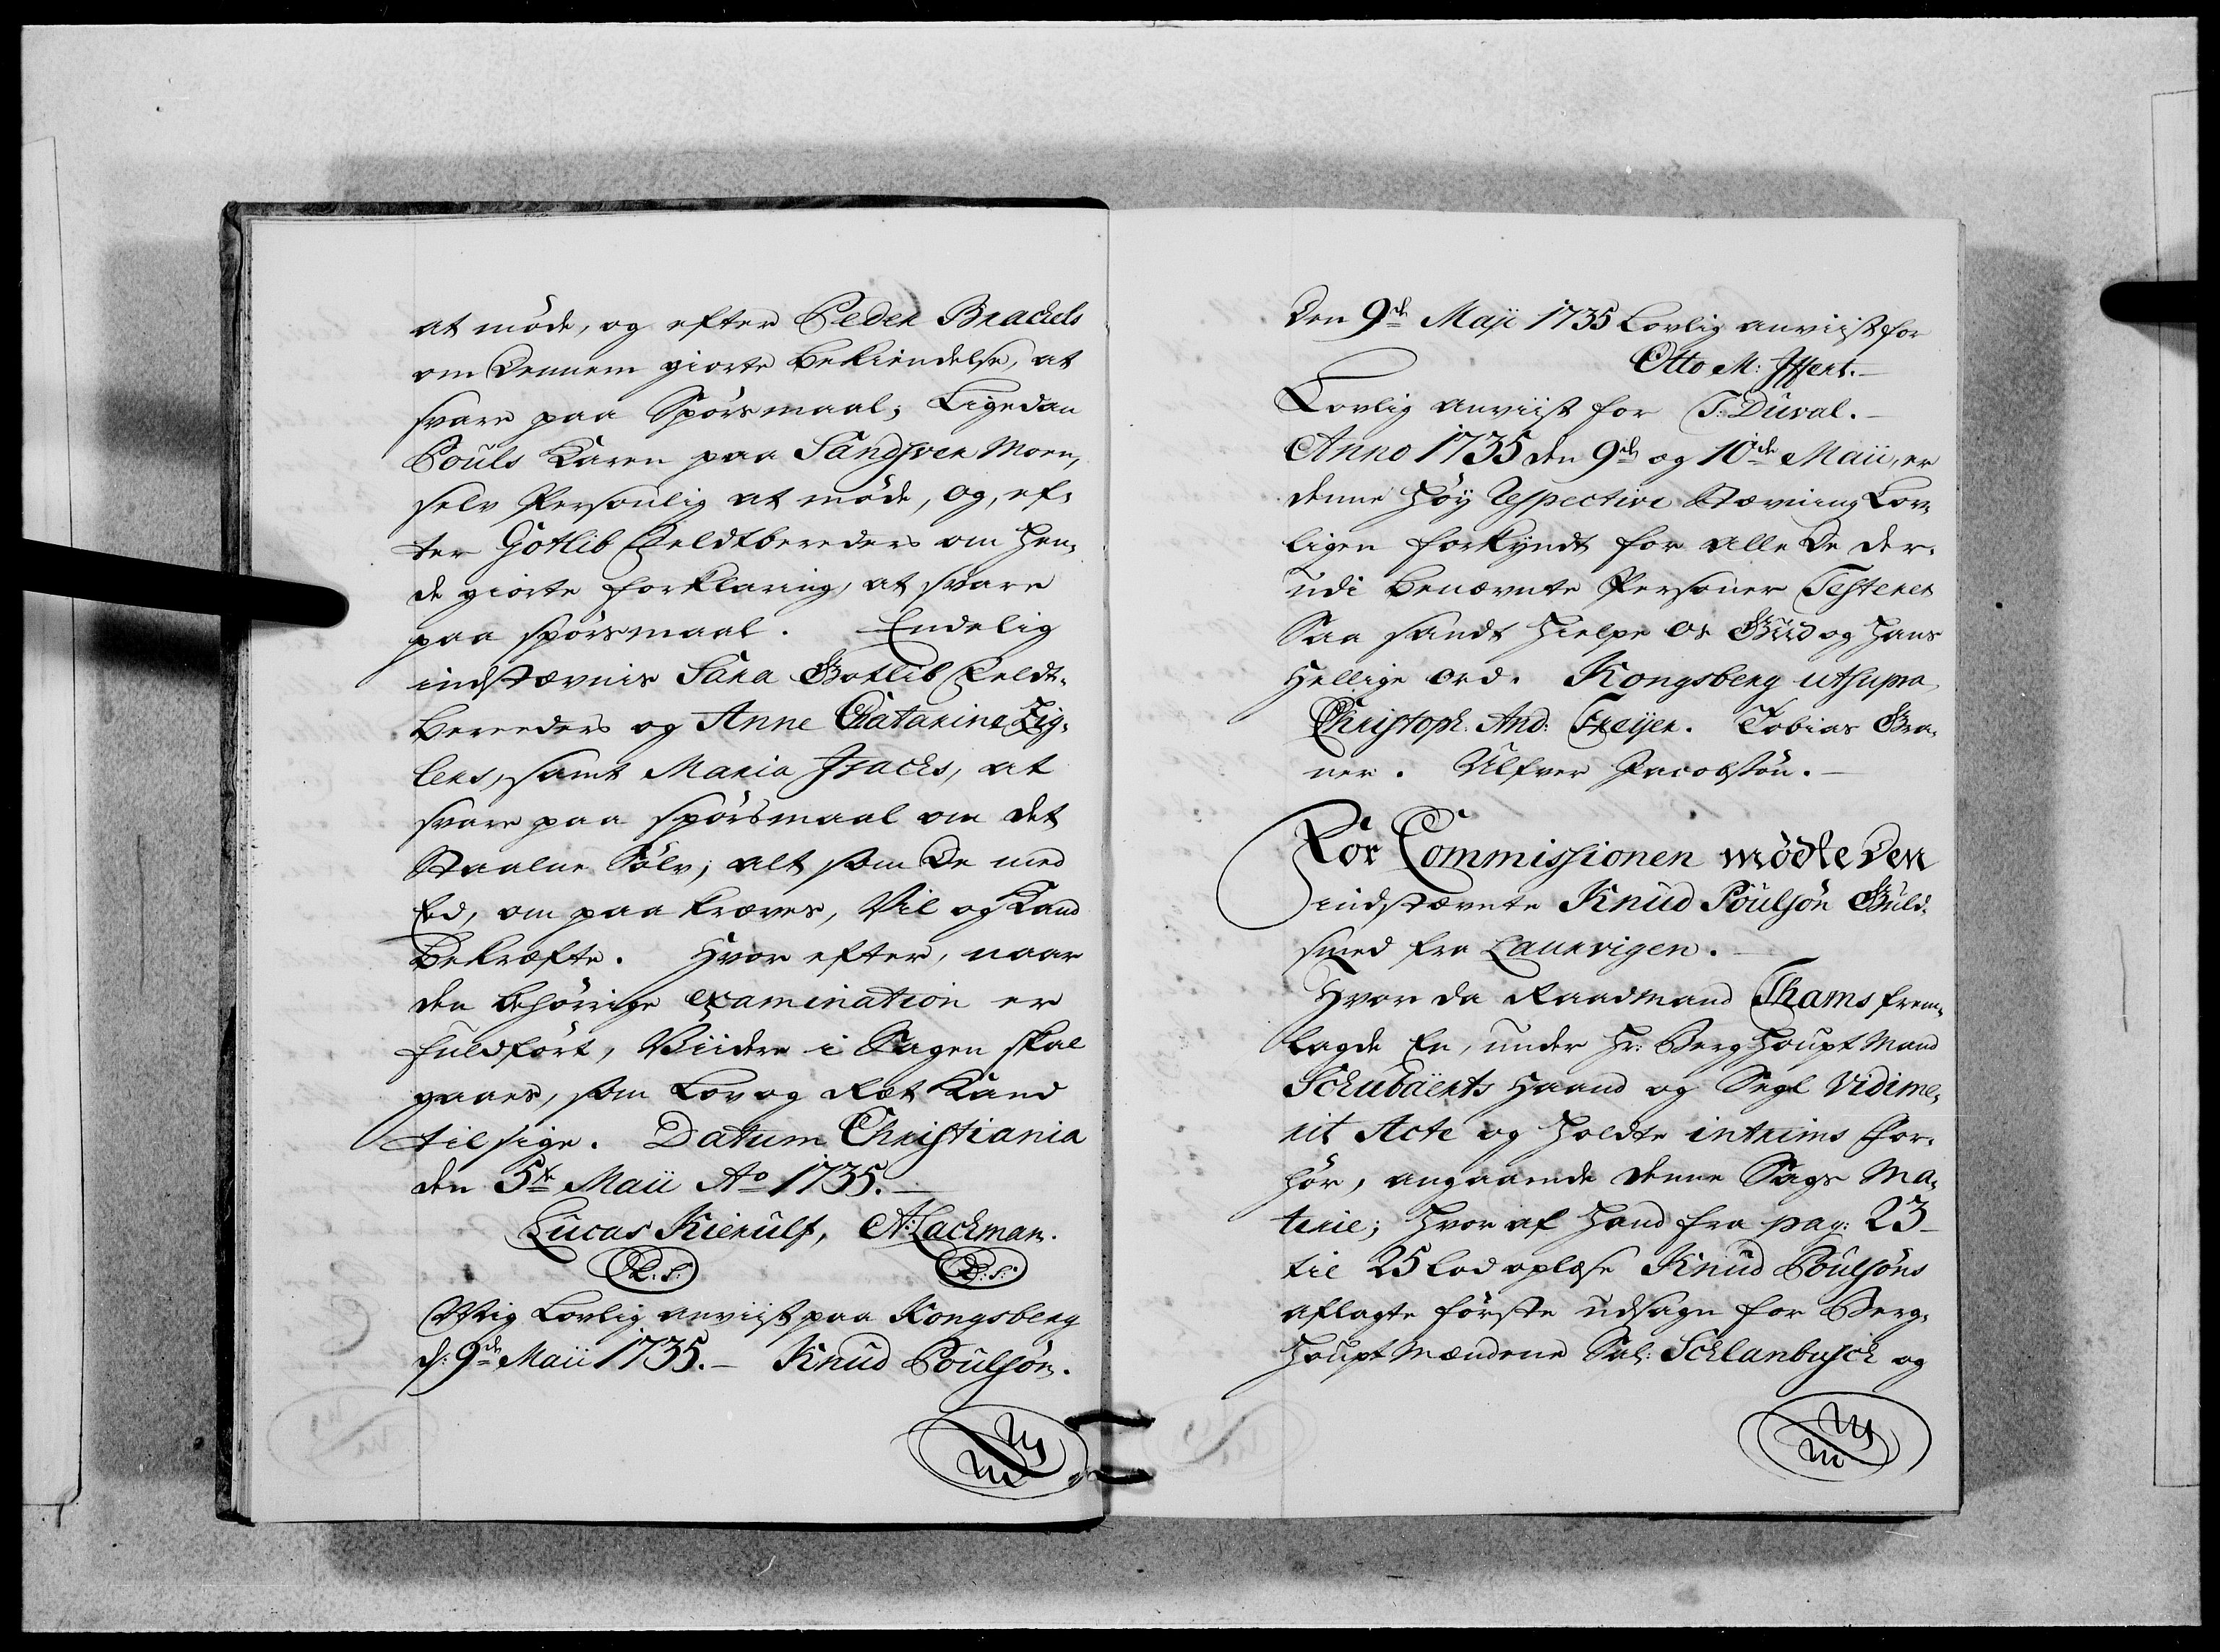 at møde, og efter Peder Brachels
om Dennem giorte bekiendelse, at
svare paa Spørsmaal; Ligedan
Pouls Karen paa Sandsver Moen,
selv Personlig at møde, og, ef-
ter Gotlib Feldtbereders om Hen-
de giorte forklaring, at svare
paa spørsmaal. Endelig
indstævnis Sara Gotlib Feldt-
bereders og Anne Catarina Zig-
lers, samt Maria Isachs, at
svare paa spørsmaal om det
Staalne Sølv; alt som De med
Ed, om paa kræves, Vil og Kand
Bekræfte. Hvor efter, naar
den behørige examination er
fuldført, Viidere i Sagen skal
gaaes, som Lov og Ræt Kand
tilsige. Datum Christiania
den 5te Maii Ao 1735.
Lucas Kierulf, A: Lachman.
(L:S:) (L:S:)
Mig Lovlig anviist paa Kongsberg
d: 9de Maii 1735. - Knud Poulsøn.
Den 9de Maji 1735 Lovlig anviist for
Otto M: Iffert. -
Lovlig anviist for T: Duval. -
Anno 1735 den 9de og 10de Maii, er
denne Høy Respective Stævning Lov-
ligen forkyndt for alle De der-
udi benævnte Personer Testerer
Saa sandt hielpe os Gud og Hans
Hellige Ord. Kongsberg ut supra
Christoph: And: Freijer. Tobias Gra-
ner. Ulfver Jacobsøn. -
For Commissionen mødte Den
indstævnte Knud Poulsøn Guld-
smed fra Laurvigen. -
Hvor da Raadmand Thams frem-
lagde En, under Hr: Berg Houpt Mand
Schubaerts Haand og Segl Vidime-
rit Acte og Holdte intrims For-
hør, angaaende denne Sags Ma-
terie; Hvor af Hand fra pag: 23
til 25 lod oplæse Knud Poulsøns
aflagte første udsagn for Berg-
Houpt Mændene Sal: Schlanbusch og